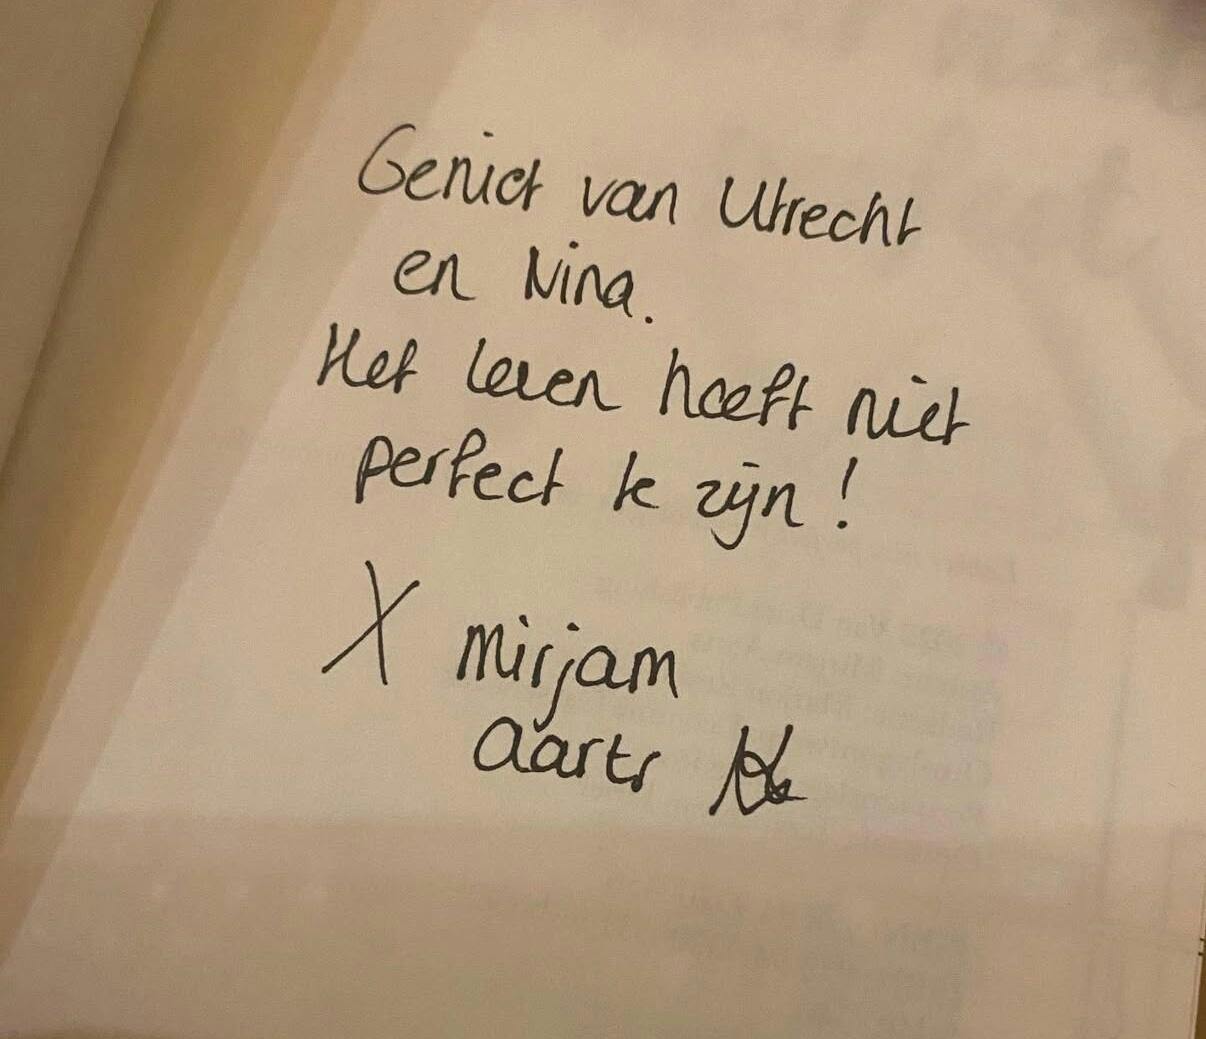 Geniet van Utrecht
en Nina.
Het leven hoeft niet
perfect te zijn!
X mirjam
aarts